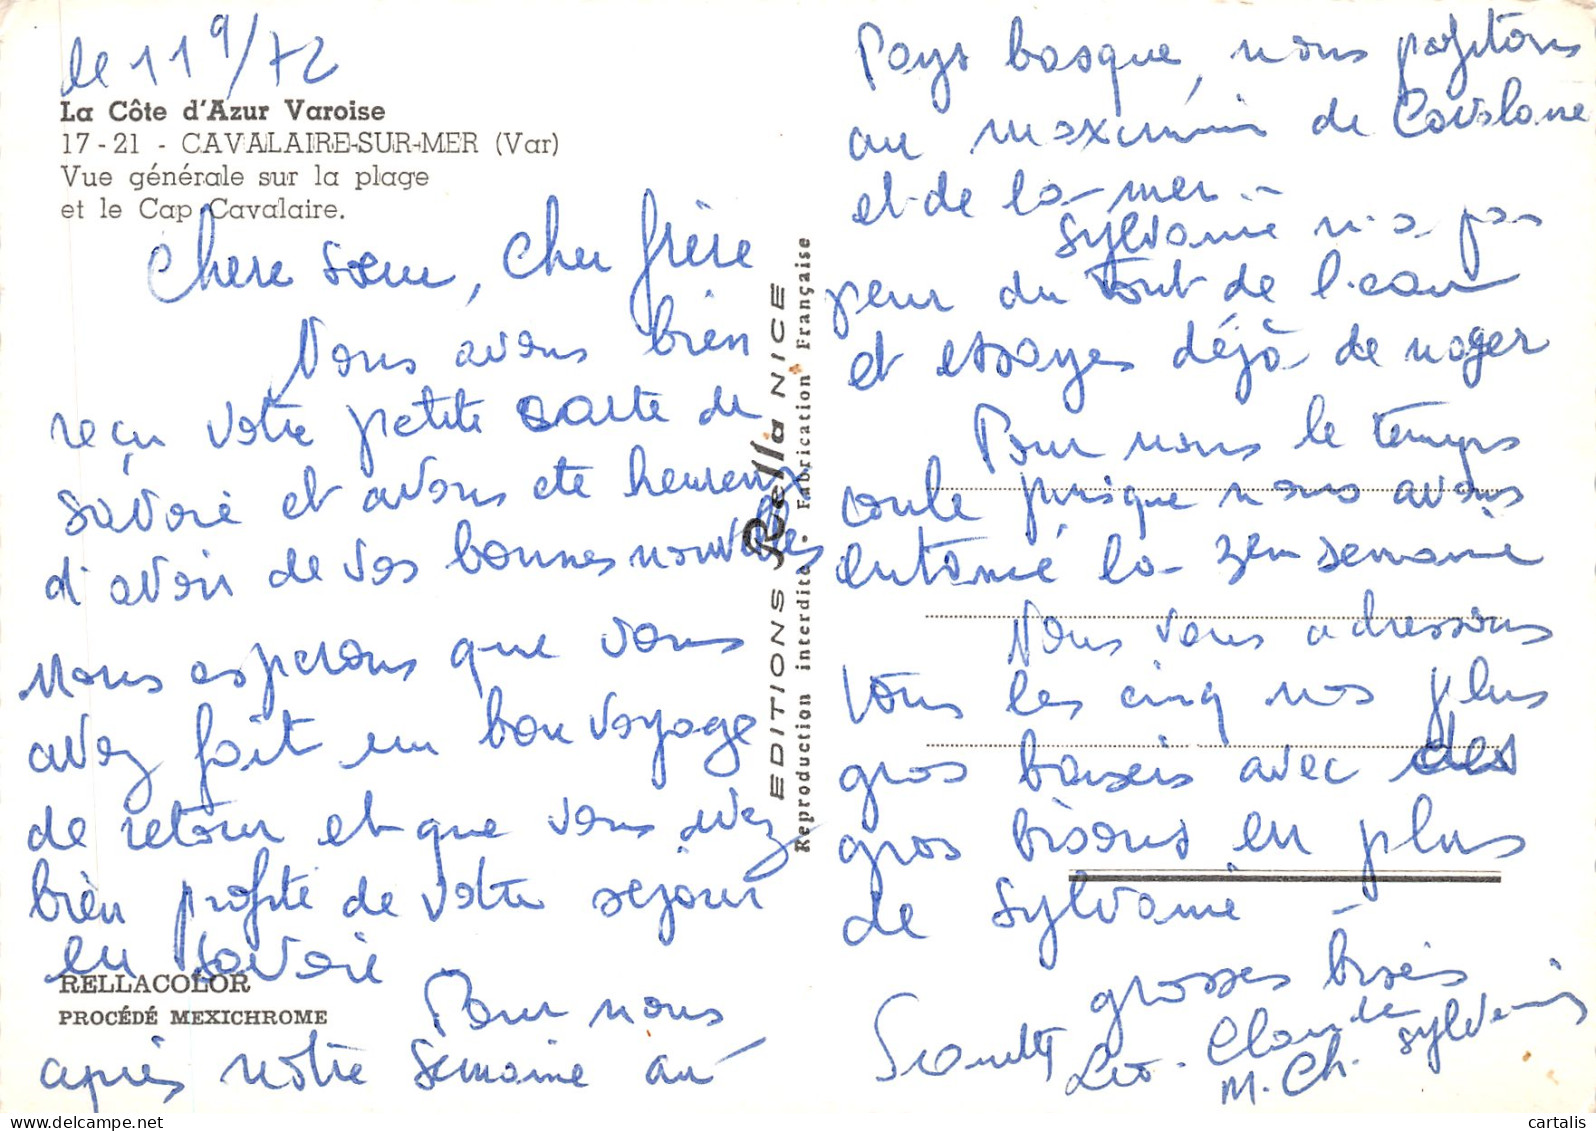 le 11 9/72
La Côte d'Azur Varoise
17-21 - CAVALAIRE-SUR-MER (Var)
Vue générale sur la plage
et le Cap Cavalaire.
Chere sœur, cher frère
Nous avons bien
reçu votre petite carte de
savoie et avons ete heureux
d'avoir de vos bonnes nouvelles
Nous esperons que vous
avez fait un bon voyage
de retour et que vous avez
bien profite de votre sejour
en Savoie
Pour nous
après notre semaine au
RELLACOLOR
PROCÉDÉ MEXICHROME
EDITIONS Rella NICE
Reproduction interdite • Fabrication Française
Pays basque, nous profitons
au maximum de Cavalaire
et de la mer.
Sylvanie n'a pas
peur du tout de l'eau
et essayes déjà de nager
Pour nous le temps
coule puisque nous avons
entamé la 3em semaine
Nous vous adressons
tous les cinq nos plus
gros baisers avec des
gros bisous en plus
de Sylvanie
grosses bises
Leo. Claude Sylvanie
M. Ch.
cartalis